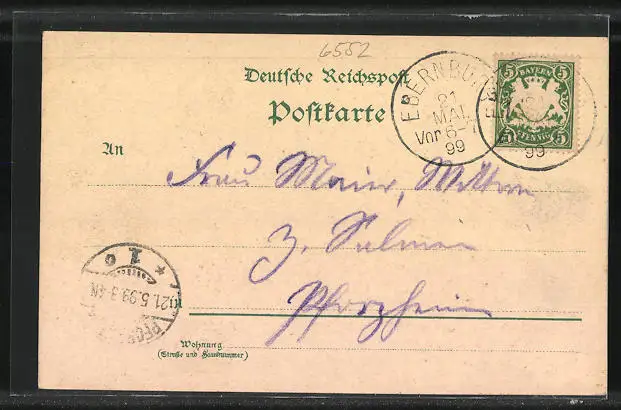 6552
Deutsche Reichspost
Postkarte
EBERNBURG
21
MAI
Vor 6-7
99
5 BAYERN 5
5 PFENNIG 5
99
An
Frau Maier, Wittwe
z. Salmen
Pforzheim
in
21.5.99.3-4N.
Wohnung
(Straße und Hausnummer)